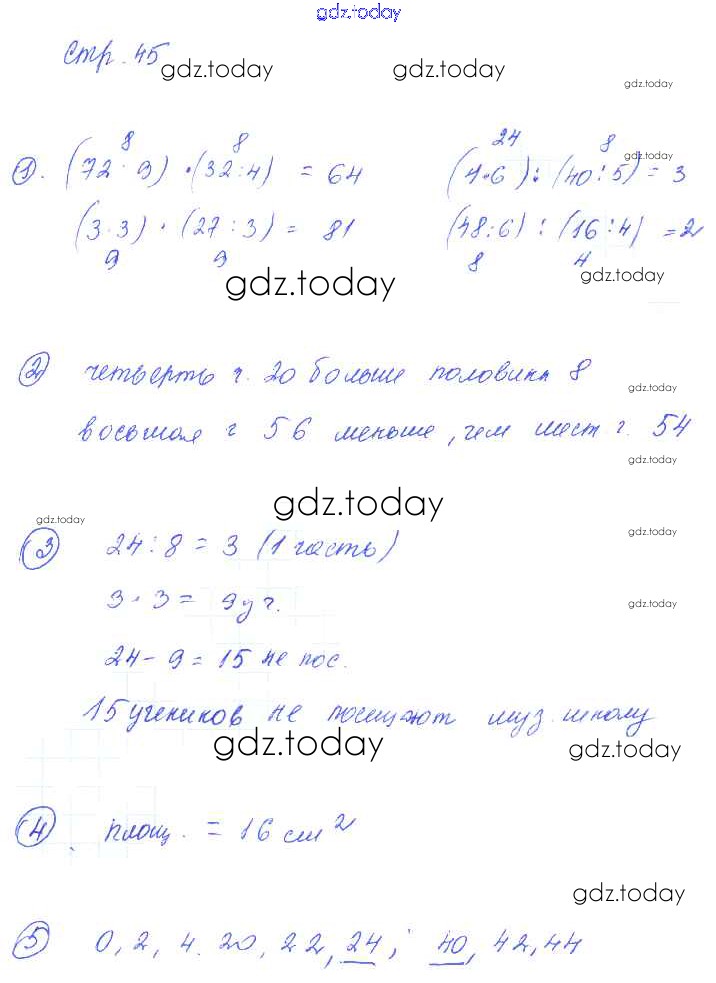 gdz.today
стр. 45
gdz.today gdz.today gdz.today
8 8 24 8 gdz.today
1. (72 : 9) · (32 : 4) = 64 (4 · 6) : (40 : 5) = 3
(3 · 3) · (27 : 3) = 81 (48 : 6) : (16 : 4) = 2
9 9 8 4
gdz.today gdz.today
2 четверть ч. 20 больше половины 8 gdz.today
восьмая ч 56 меньше, чем шест ч. 54
gdz.today
gdz.today
gdz.today gdz.today
3 24 : 8 = 3 (1 часть)
3 · 3 = 9 уч. gdz.today
24 - 9 = 15 не пос.
15 учеников не посещают муз. школу
gdz.today gdz.today
4 площ. = 16 см²
gdz.today
5 0, 2, 4. 20, 22, 24; 40, 42, 44